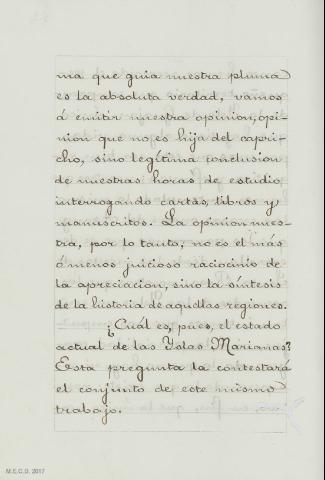 ma que guia nuestra pluma
es la absoluta verdad, vamos
á emitir nuestra opinion, opi-
nion que no es hija del capri-
cho, sino legítima conclusion
de nuestras horas de estudio
interrogando cartas, libros y
manuscritos. La opinion nues-
tra, por lo tanto, no es el más
ó menos juicioso raciocinio de
la apreciacion, sino la síntesis
de la historia de aquellas regiones.
¿Cuál es, pues, el estado
actual de las Yslas Marianas?
Esta pregunta la contestará
el conjunto de este mismo
trabajo.
M.E.C.D. 2017